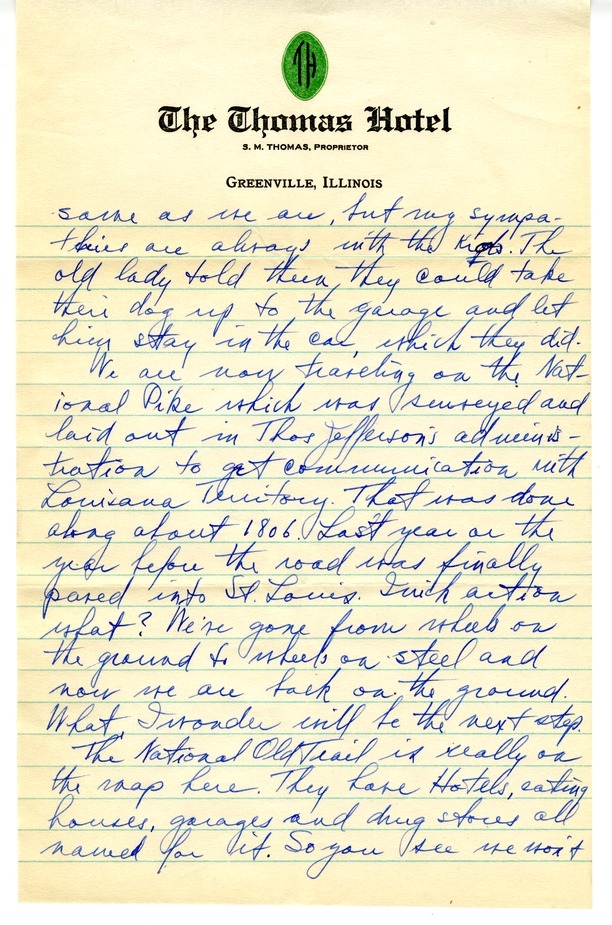 TH
The Thomas Hotel
S. M. THOMAS, PROPRIETOR
GREENVILLE, ILLINOIS
same as we are, but my sympa-
thies are always with the kids. The
old lady told them they could take
their dog up to the garage and let
him stay in the car, which they did.
We are now traveling on the Nat-
ional Pike which was surveyed and
laid out in Thos Jefferson's adminis-
tration to get communication with
Louisana Territory. That was done
along about 1806. Last year or the
year before the road was finally
paved into St. Louis. Quick action
what? We've gone from wheels on
the ground to wheels on steel and
now we are back on the ground.
What I wonder will be the next step.
The National Old Trail is really on
the map here. They have Hotels, eating
houses, garages and drug stores all
named for it. So you see we won't